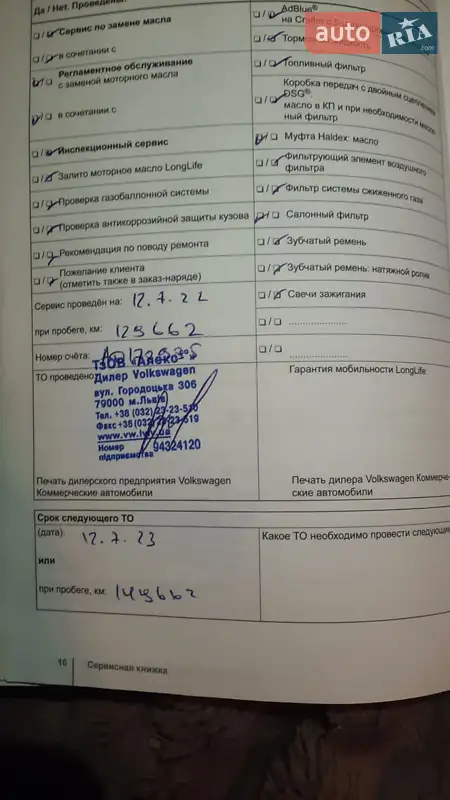 Да / Нет. Проведены
☐ / ☑ Сервис по замене масла
☐ / ☑ в сочетании с
☑ / ☐ Регламентное обслуживание
с заменой моторного масла
☑ / ☐ в сочетании с
☐ / ☑ Инспекционный сервис
☐ / ☑ Залито моторное масло LongLife
☐ / ☑ Проверка газобаллонной системы
☐ / ☑ Проверка антикоррозийной защиты кузова
☐ / ☑ Рекомендация по поводу ремонта
☐ / ☑ Пожелание клиента
(отметить также в заказ-наряде)
Сервис проведён на: 12.7.22
при пробеге, км: 129662
Номер счёта:
ТО проведено:
ТЗОВ «Алеко»
Дилер Volkswagen
вул. Городоцька 306
79000 м.Львів
Тел. +38 (032) 23-23-520
Факс +38 (032) 23-23-519
www.vw.lviv.ua
Номер 94324120
підприємства
Печать дилерского предприятия Volkswagen
Коммерческие автомобили
☐ / ☑ AdBlue®
на Crafter с
☐ / ☑ Тормозная жидкость
☐ / ☑ Топливный фильтр
☐ / ☑ Коробка передач с двойным сцеплением
DSG®:
масло в КП и при необходимости масля
ный фильтр
☑ / ☐ Муфта Haldex: масло
☐ / ☑ Фильтрующий элемент воздушного
фильтра
☐ / ☑ Фильтр системы сжиженного газа
☑ / ☐ Салонный фильтр
☐ / ☑ Зубчатый ремень
☐ / ☑ Зубчатый ремень: натяжной ролик
☐ / ☑ Свечи зажигания
☐ / ☐ ....................
☐ / ☐ ....................
Гарантия мобильности LongLife
Печать дилера Volkswagen Коммерче-
ские автомобили
Срок следующего ТО
(дата): 12.7.23
или
при пробеге, км: 149662
Какое ТО необходимо провести следующим
16 Сервисная книжка
auto RIA.com